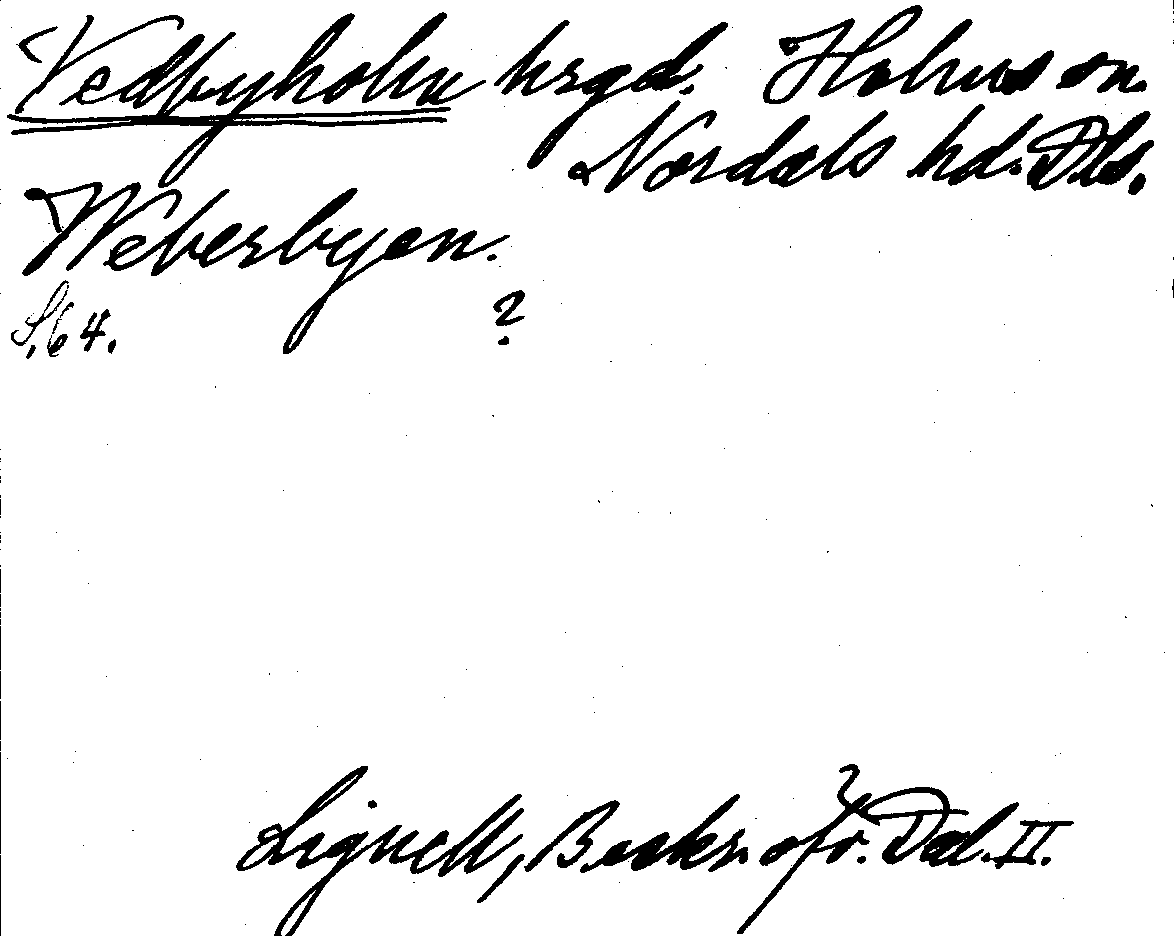 Vedbyholm hrgd. Holms sn.
Nordals hd. Dls.
Weberbyen.
S. 64. ?
Lignell, Beskr. öfv. Dal. II.